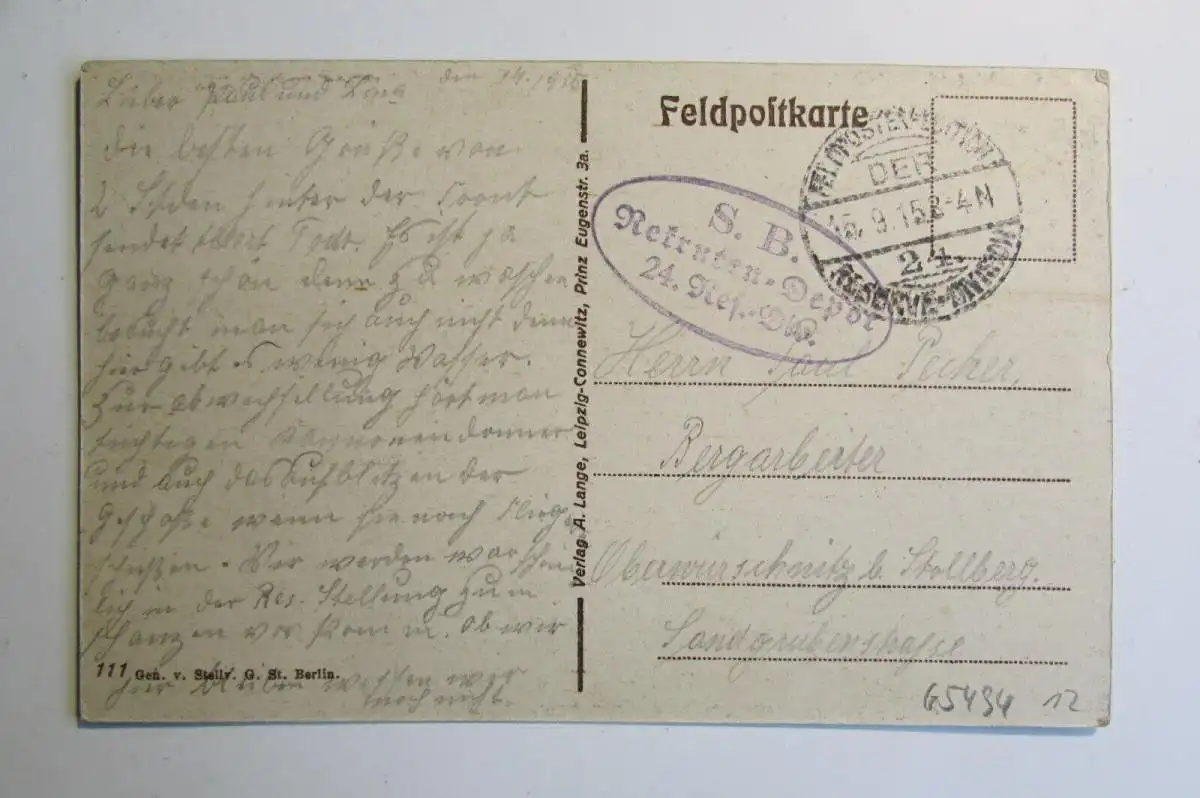 den 14. 1915
Lieber Paul und Lina
die besten Grüße von
2 Stden hinter der Front
sendet Albert Todt. Es ist ja
ganz schön denn zu waschen
braucht man sich auch nicht denn
hier gibt es wenig Wasser.
Zur abwechsellung hört man
tüchtigen Kanonendonner
und auch das Aufblitzen der
Geschosse wenn sie nach Flieg
schießen. Wir werden warschein
lich in der Res. Stellung zum
schanzen vor kom m. ob wir
hier bleiben wissen wir
noch nicht.
111 Gen. v. Stellv. G. St. Berlin.
Verlag A. Lange, Leipzig-Connewitz, Prinz Eugenstr. 3a.
Feldpostkarte
FELDPOSTEXPEDITION
DER
15. 9. 15 3-4 N
24.
RESERVE-DIVISION
S. B.
Rekruten-Depot
24. Res.-Div.
Herrn Paul Pecher,
Bergarbeiter
Oberwürschnitz b. Stollberg.
Sandgrubenstrasse
G5494 12